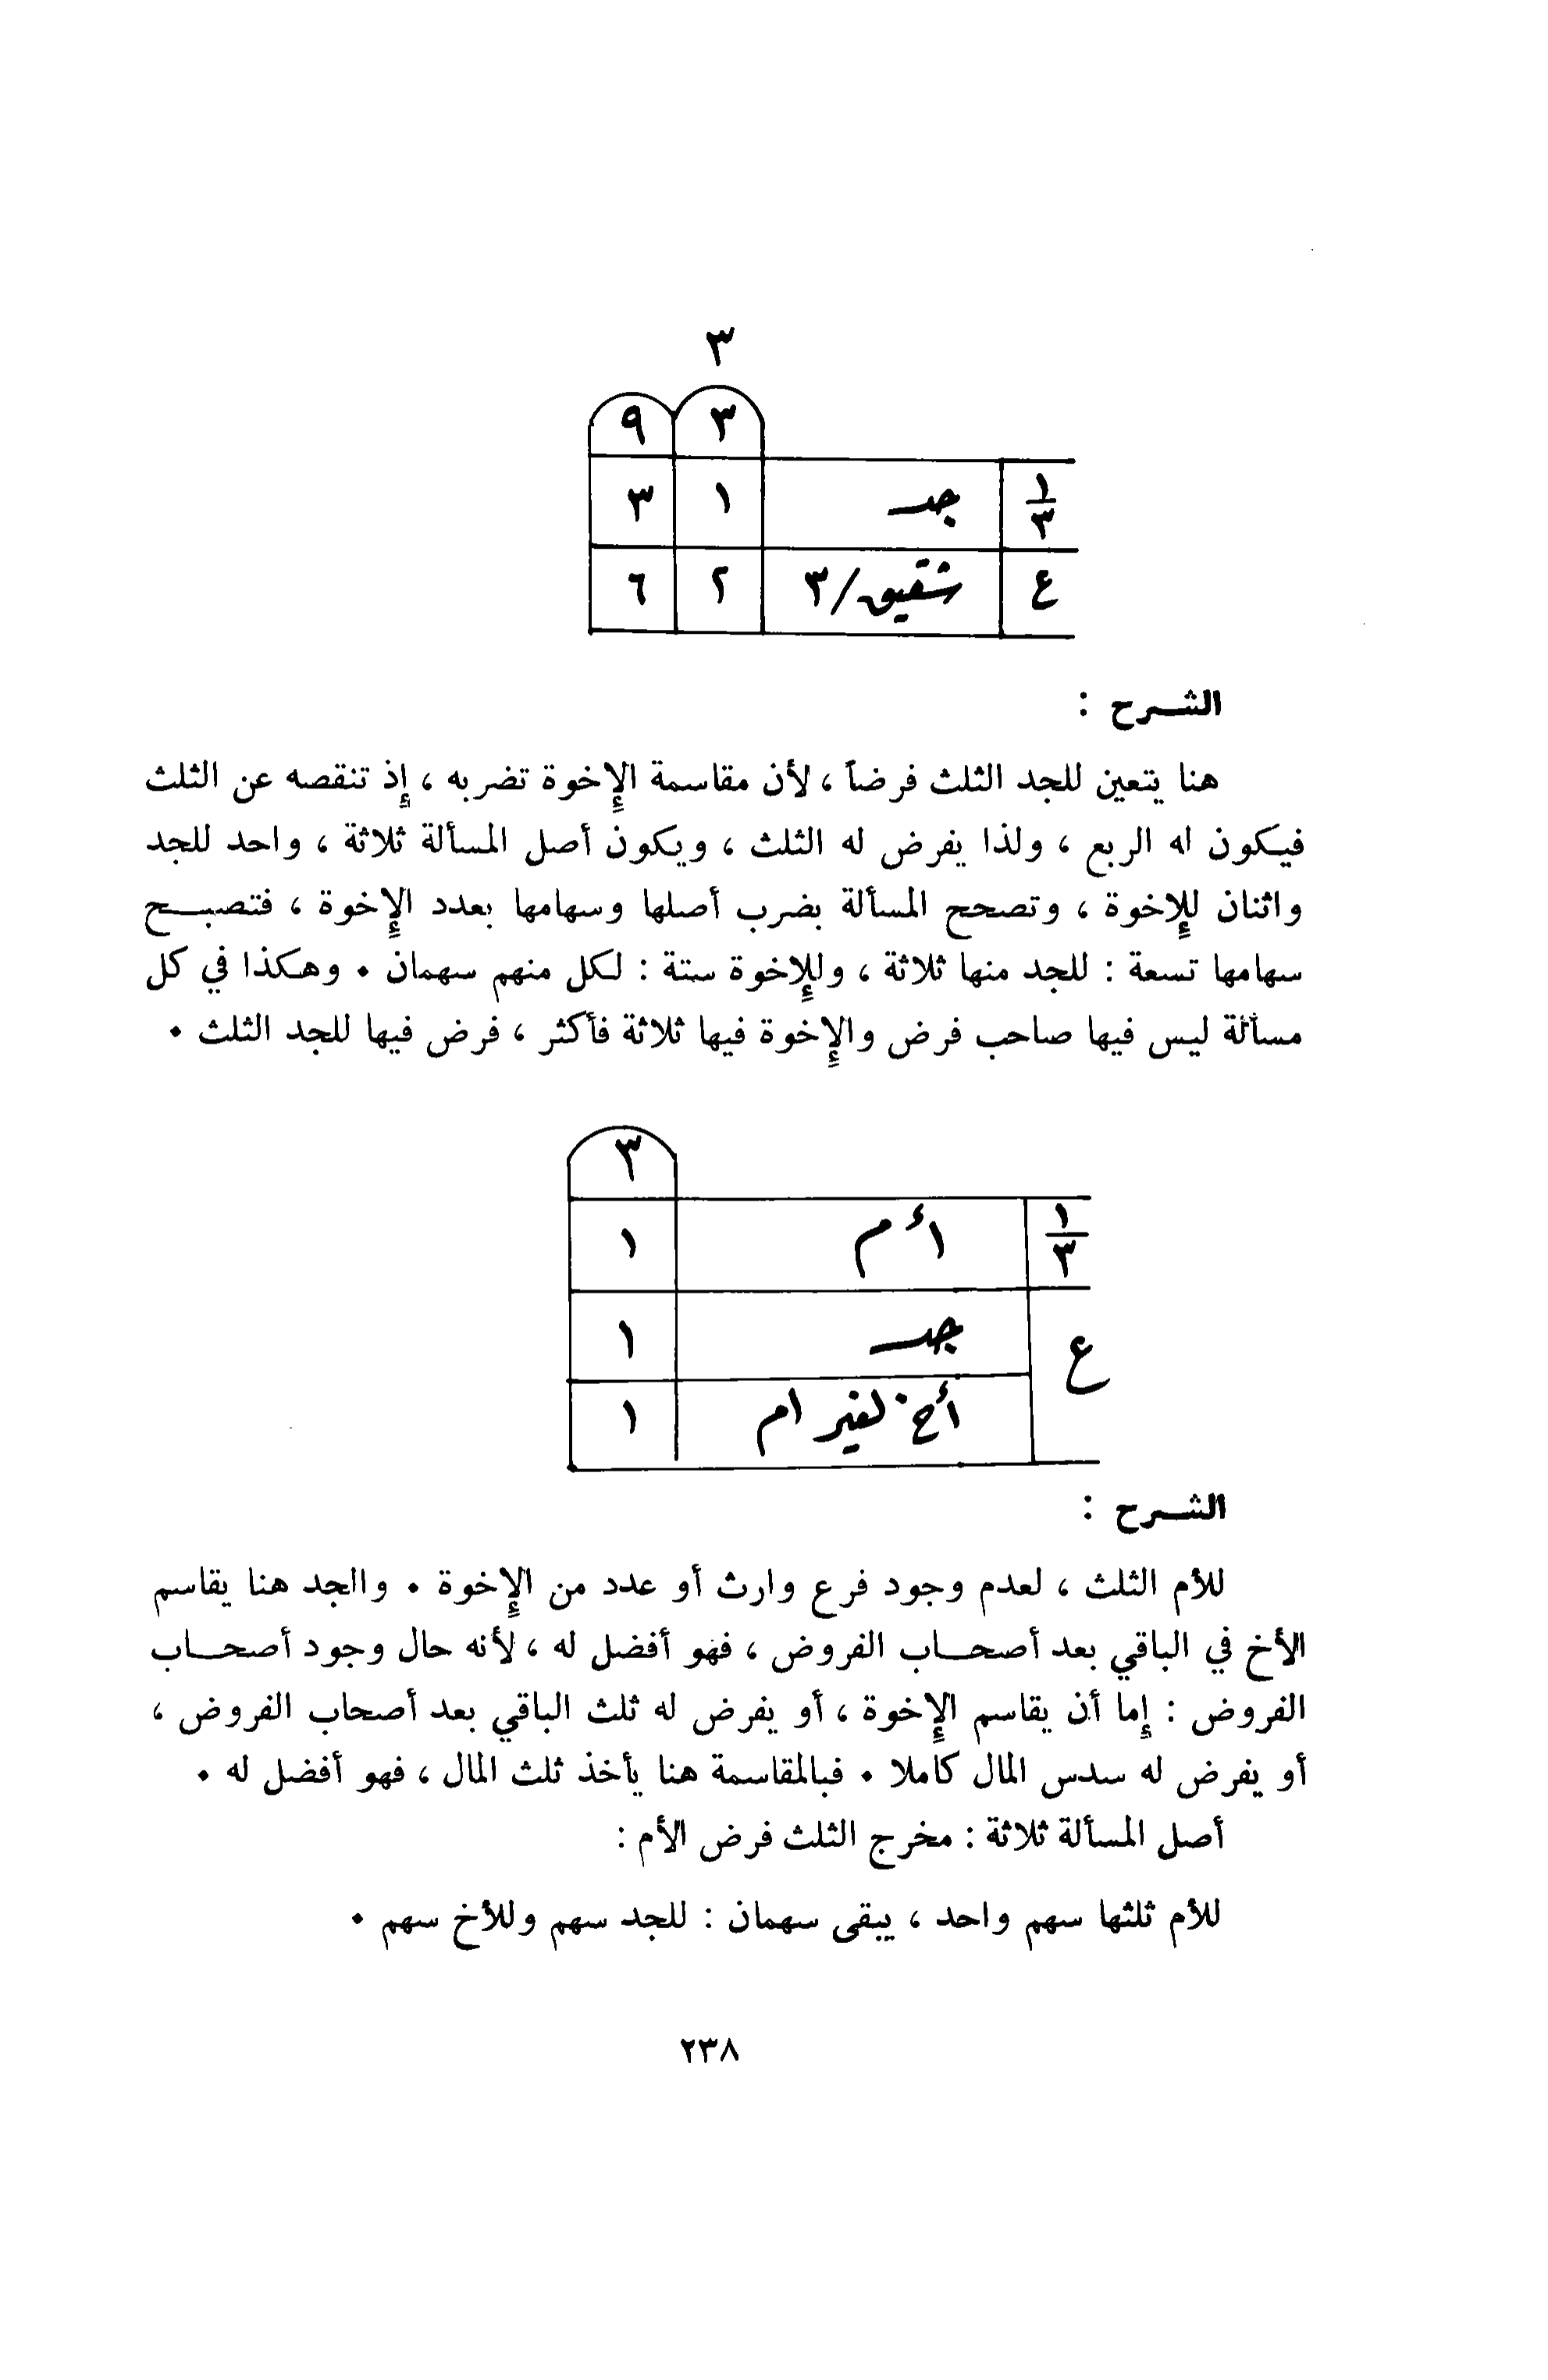 ٣
٣ ٩
١/٣ جد ١ ٣
ع شقيق/٣ ٢ ٦
الشرح :
هنا يتعين للجد الثلث فرضاً ، لأن مقاسمة الإخوة تضر به ، إذ تنقصه عن الثلث
فيكون له الربع ، ولذا يفرض له الثلث ، ويكون أصل المسألة ثلاثة ، واحد للجد
واثنان للإخوة ، وتصحح المسألة بضرب أصلها وسهامها بعدد الإخوة ، فتصبح
سهامها تسعة : للجد منها ثلاثة ، وللإخوة ستة : لكل منهم سهمان . وهكذا في كل
مسألة ليس فيها صاحب فرض والإخوة فيها ثلاثة فأكثر ، فرض فيها للجد الثلث .
٣
١/٣ أم ١
ع جد ١
أخ لغير أم ١
الشرح :
للأم الثلث ، لعدم وجود فرع وارث أو عدد من الإخوة . والجد هنا يقاسم
الأخ في الباقي بعد أصحاب الفروض ، فهو أفضل له ، لأنه حال وجود أصحاب
الفروض : إما أن يقاسم الإخوة ، أو يفرض له ثلث الباقي بعد أصحاب الفروض ،
أو يفرض له سدس المال كاملا . فبالمقاسمة هنا يأخذ ثلث المال ، فهو أفضل له .
أصل المسألة ثلاثة : مخرج الثلث فرض الأم :
للأم ثلثها سهم واحد ، يبقى سهمان : للجد سهم وللأخ سهم .
٢٣٨